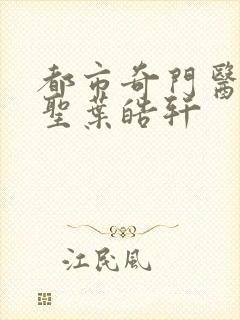 都市奇門醫
聖葉皓軒
江民風